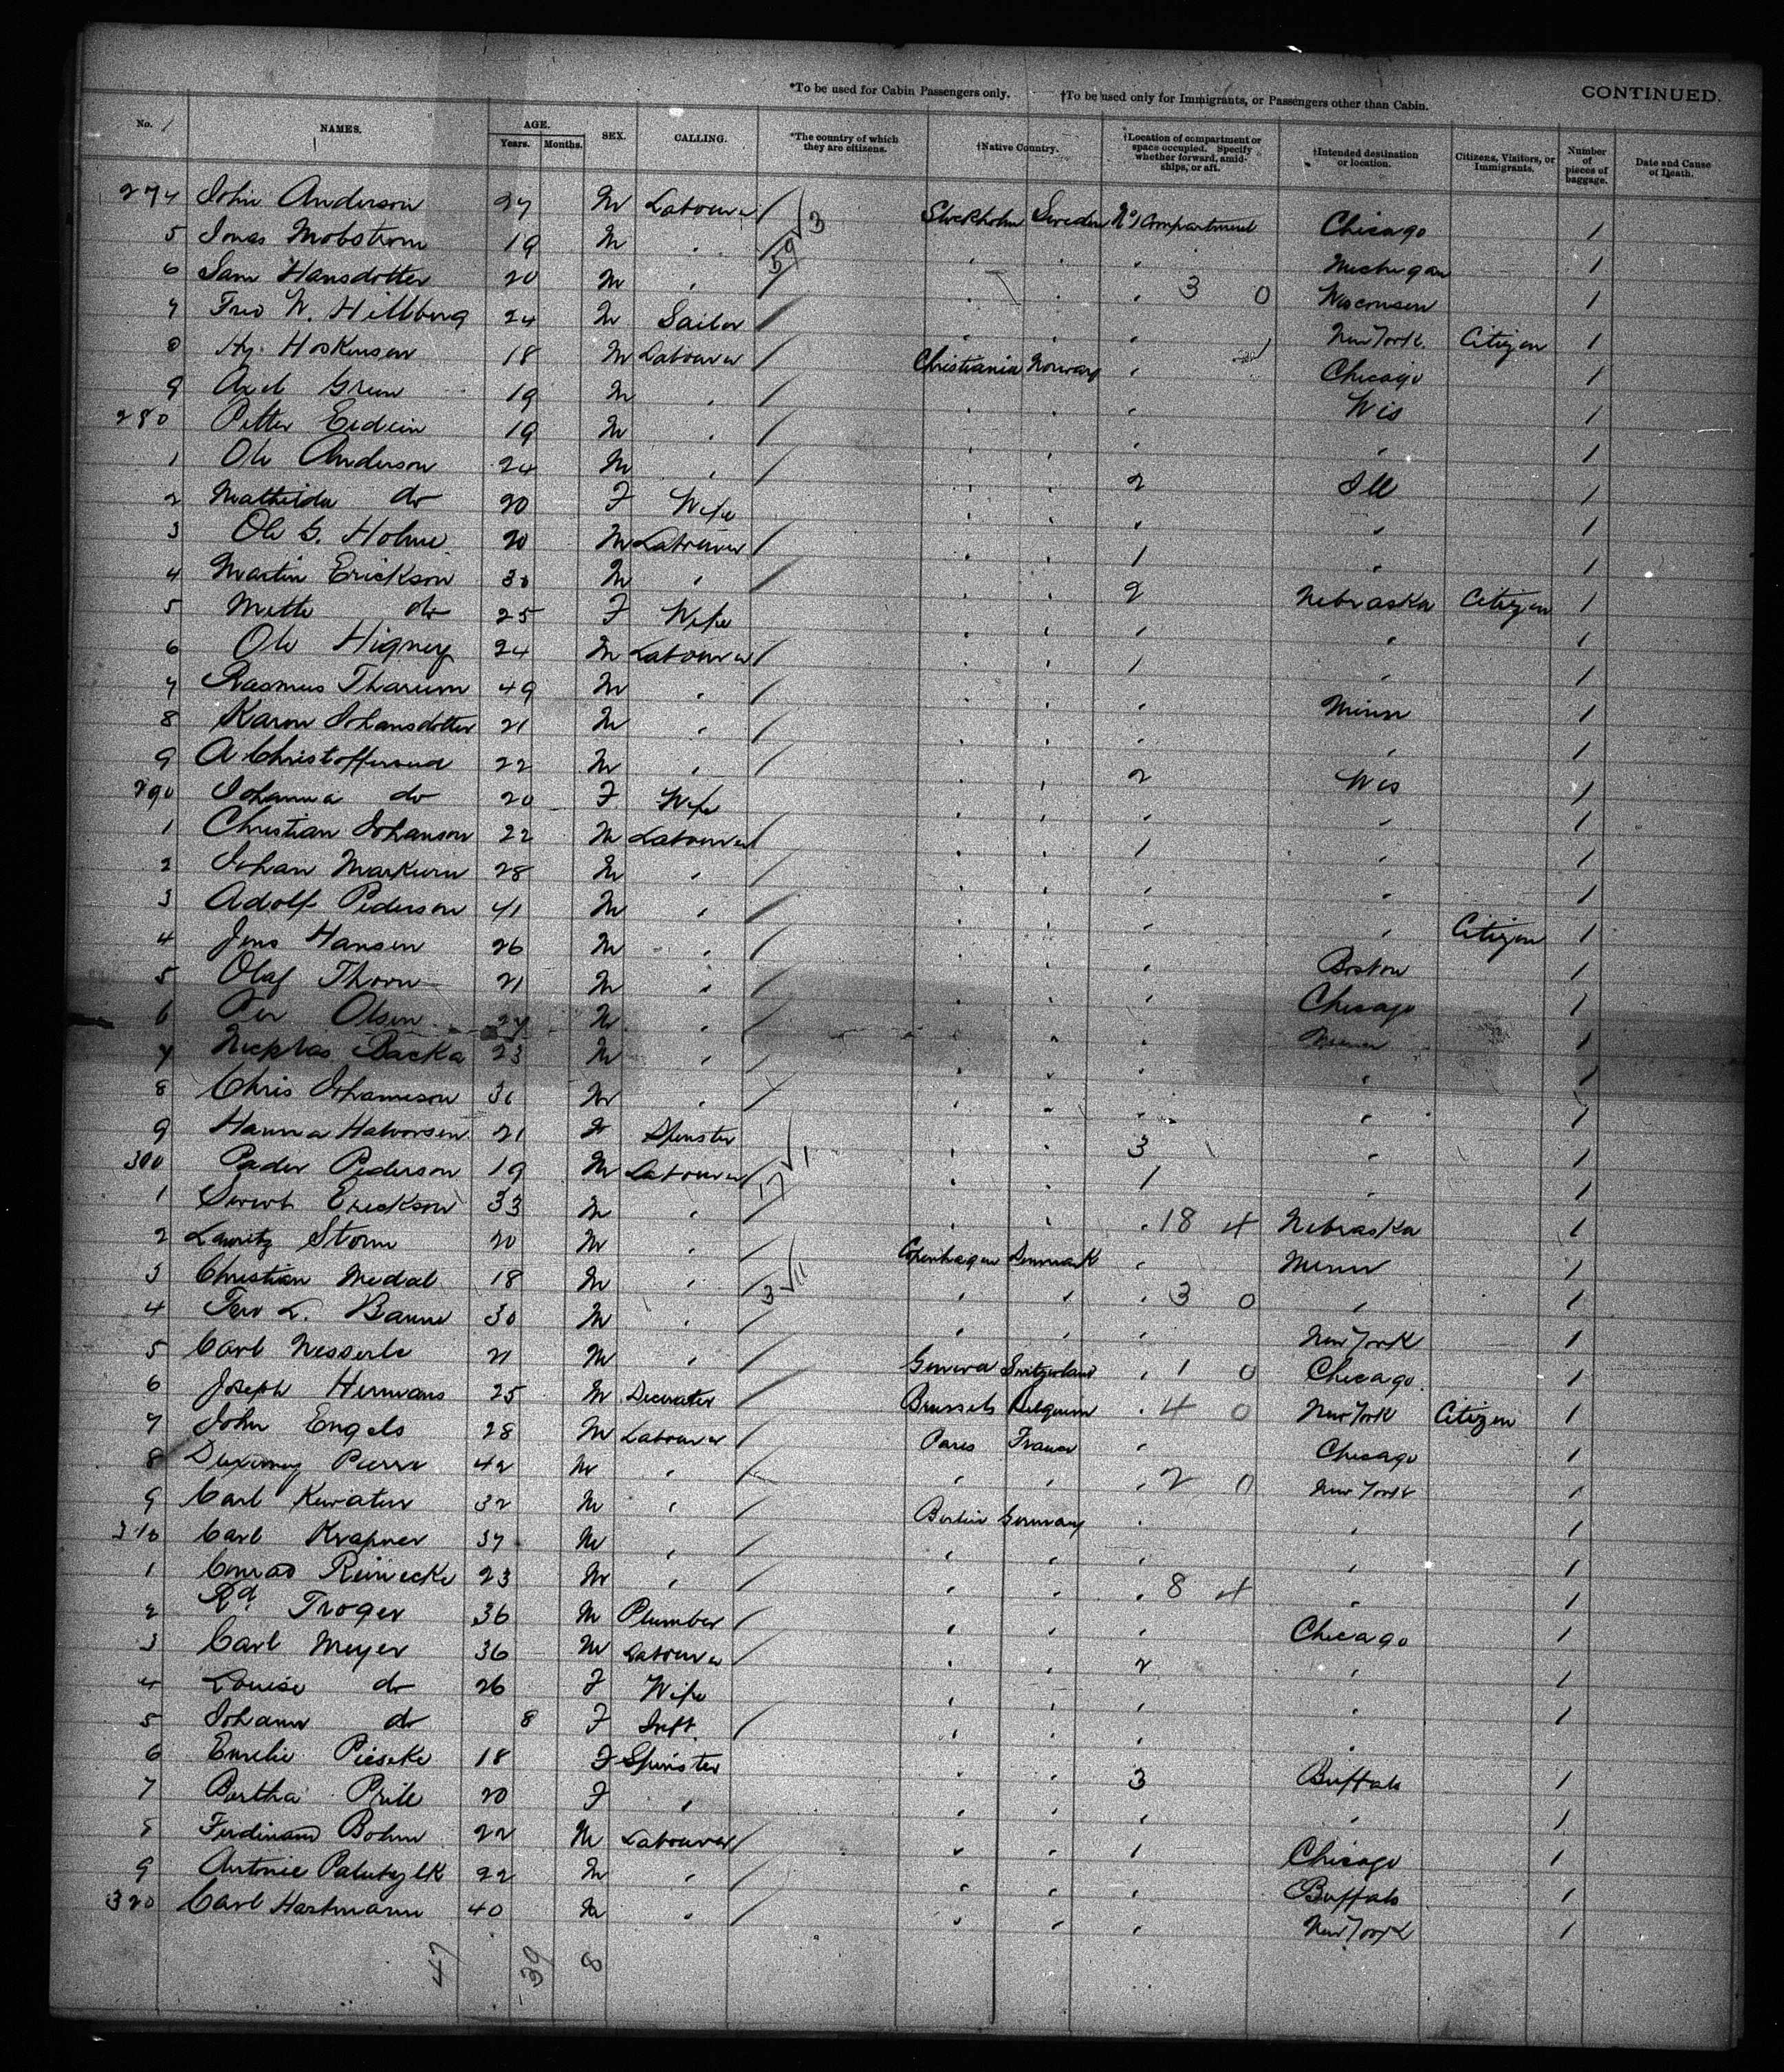 *To be used for Cabin Passengers only. †To be used only for Immigrants, or Passengers other than Cabin. CONTINUED.
No. NAMES. AGE. Years. Months. SEX. CALLING. *The country of which they are citizens. †Native Country. †Location of compartment or space occupied. Specify whether forward, amidships, or aft. †Intended destination or location. Citizens, Visitors, or Immigrants. Number of pieces of baggage. Date and Cause of Death.
274 John Anderson 27 M Labourer Stockholm Sweden No 1 Compartment Chicago 1
5 Jonas Mobstrom 19 M " " " " Michigan 1
6 Hansdotter 20 M " " " " 3 0 Wisconsin 1
7 Fred W. Hillberg 24 M Sailor " " " New York Citizen 1
8 Hy. Hoskinson 18 M Labourer Christiania Norway " Chicago 1
9 Axel Green 19 M " " " " Wis 1
280 Petter 19 M " " " " " 1
1 Ole Anderson 24 M " " " 2 Ill 1
2 Mathilda do 20 F Wife " " " " 1
3 Ole G. Holme 20 M Labourer " " 1 " 1
4 Martin Erickson 30 M " " " 2 Nebraska Citizen 1
5 Mette do 25 F Wife " " " " 1
6 Ole Higney 24 M Labourer " " 1 " 1
7 Rasmus Tharum 49 M " " " " Minn 1
8 Karon Johansdotter 21 M " " " " " 1
9 A Christofferson 22 M " " " 2 Wis 1
290 Johanna do 20 F Wife " " " " 1
1 Christian Johanson 22 M Labourer " " 1 " 1
2 Johan Markurin 28 M " " " " " 1
3 Adolf Pederson 41 M " " " " " Citizen 1
4 Jens Hansen 26 M " " " " Boston 1
5 Olaf Thorn 21 M " " " " Chicago 1
6 Per Olsen 27 M " " " " Minn 1
7 Backa 23 M " " " " " 1
8 Chris Johanneson 31 M " " " " " 1
9 Hanna Halvorsen 21 Spinster " " 3 " 1
300 Peder Pederson 19 M Labourer " " 1 " 1
1 Erickson 33 M " " " " 18 4 Nebraska 1
2 Lauritz Storm 20 M " Copenhagen Denmark " Minn 1
3 Christian Medal 18 M " " " " 3 0 " 1
4 L. 30 M " " " " New York 1
5 Carl Nesserle 21 M " Geneva Switzerland " 1 0 Chicago 1
6 Joseph Hermans 25 M Decorater Brussels Belgium " 4 0 New York Citizen 1
7 John Engels 28 M Labourer Paris France " Chicago 1
8 Pierre 42 M " " " " 2 0 New York 1
9 Carl 32 M " Berlin Germany " " 1
310 Carl Krapner 37 M " " " " " 1
1 Conrad Reinecke 23 M " " " " 8 4 " 1
2 Rd. Troger 36 M Plumber " " " Chicago 1
3 Carl Meyer 36 M Labourer " " 2 " 1
4 Louise do 26 F Wife " " " " 1
5 Johann do 8 F Inft. " " " "
6 Emelie Pieseke 18 F Spinster " " 3 Buffalo 1
7 Bertha Prite 20 F " " " " " 1
8 Ferdinand Bohm 22 M Labourer " " 1 Chicago 1
9 Antonie 22 M " " " " Buffalo 1
320 Carl Hartmann 40 M " " " " New York 1
47 39 8